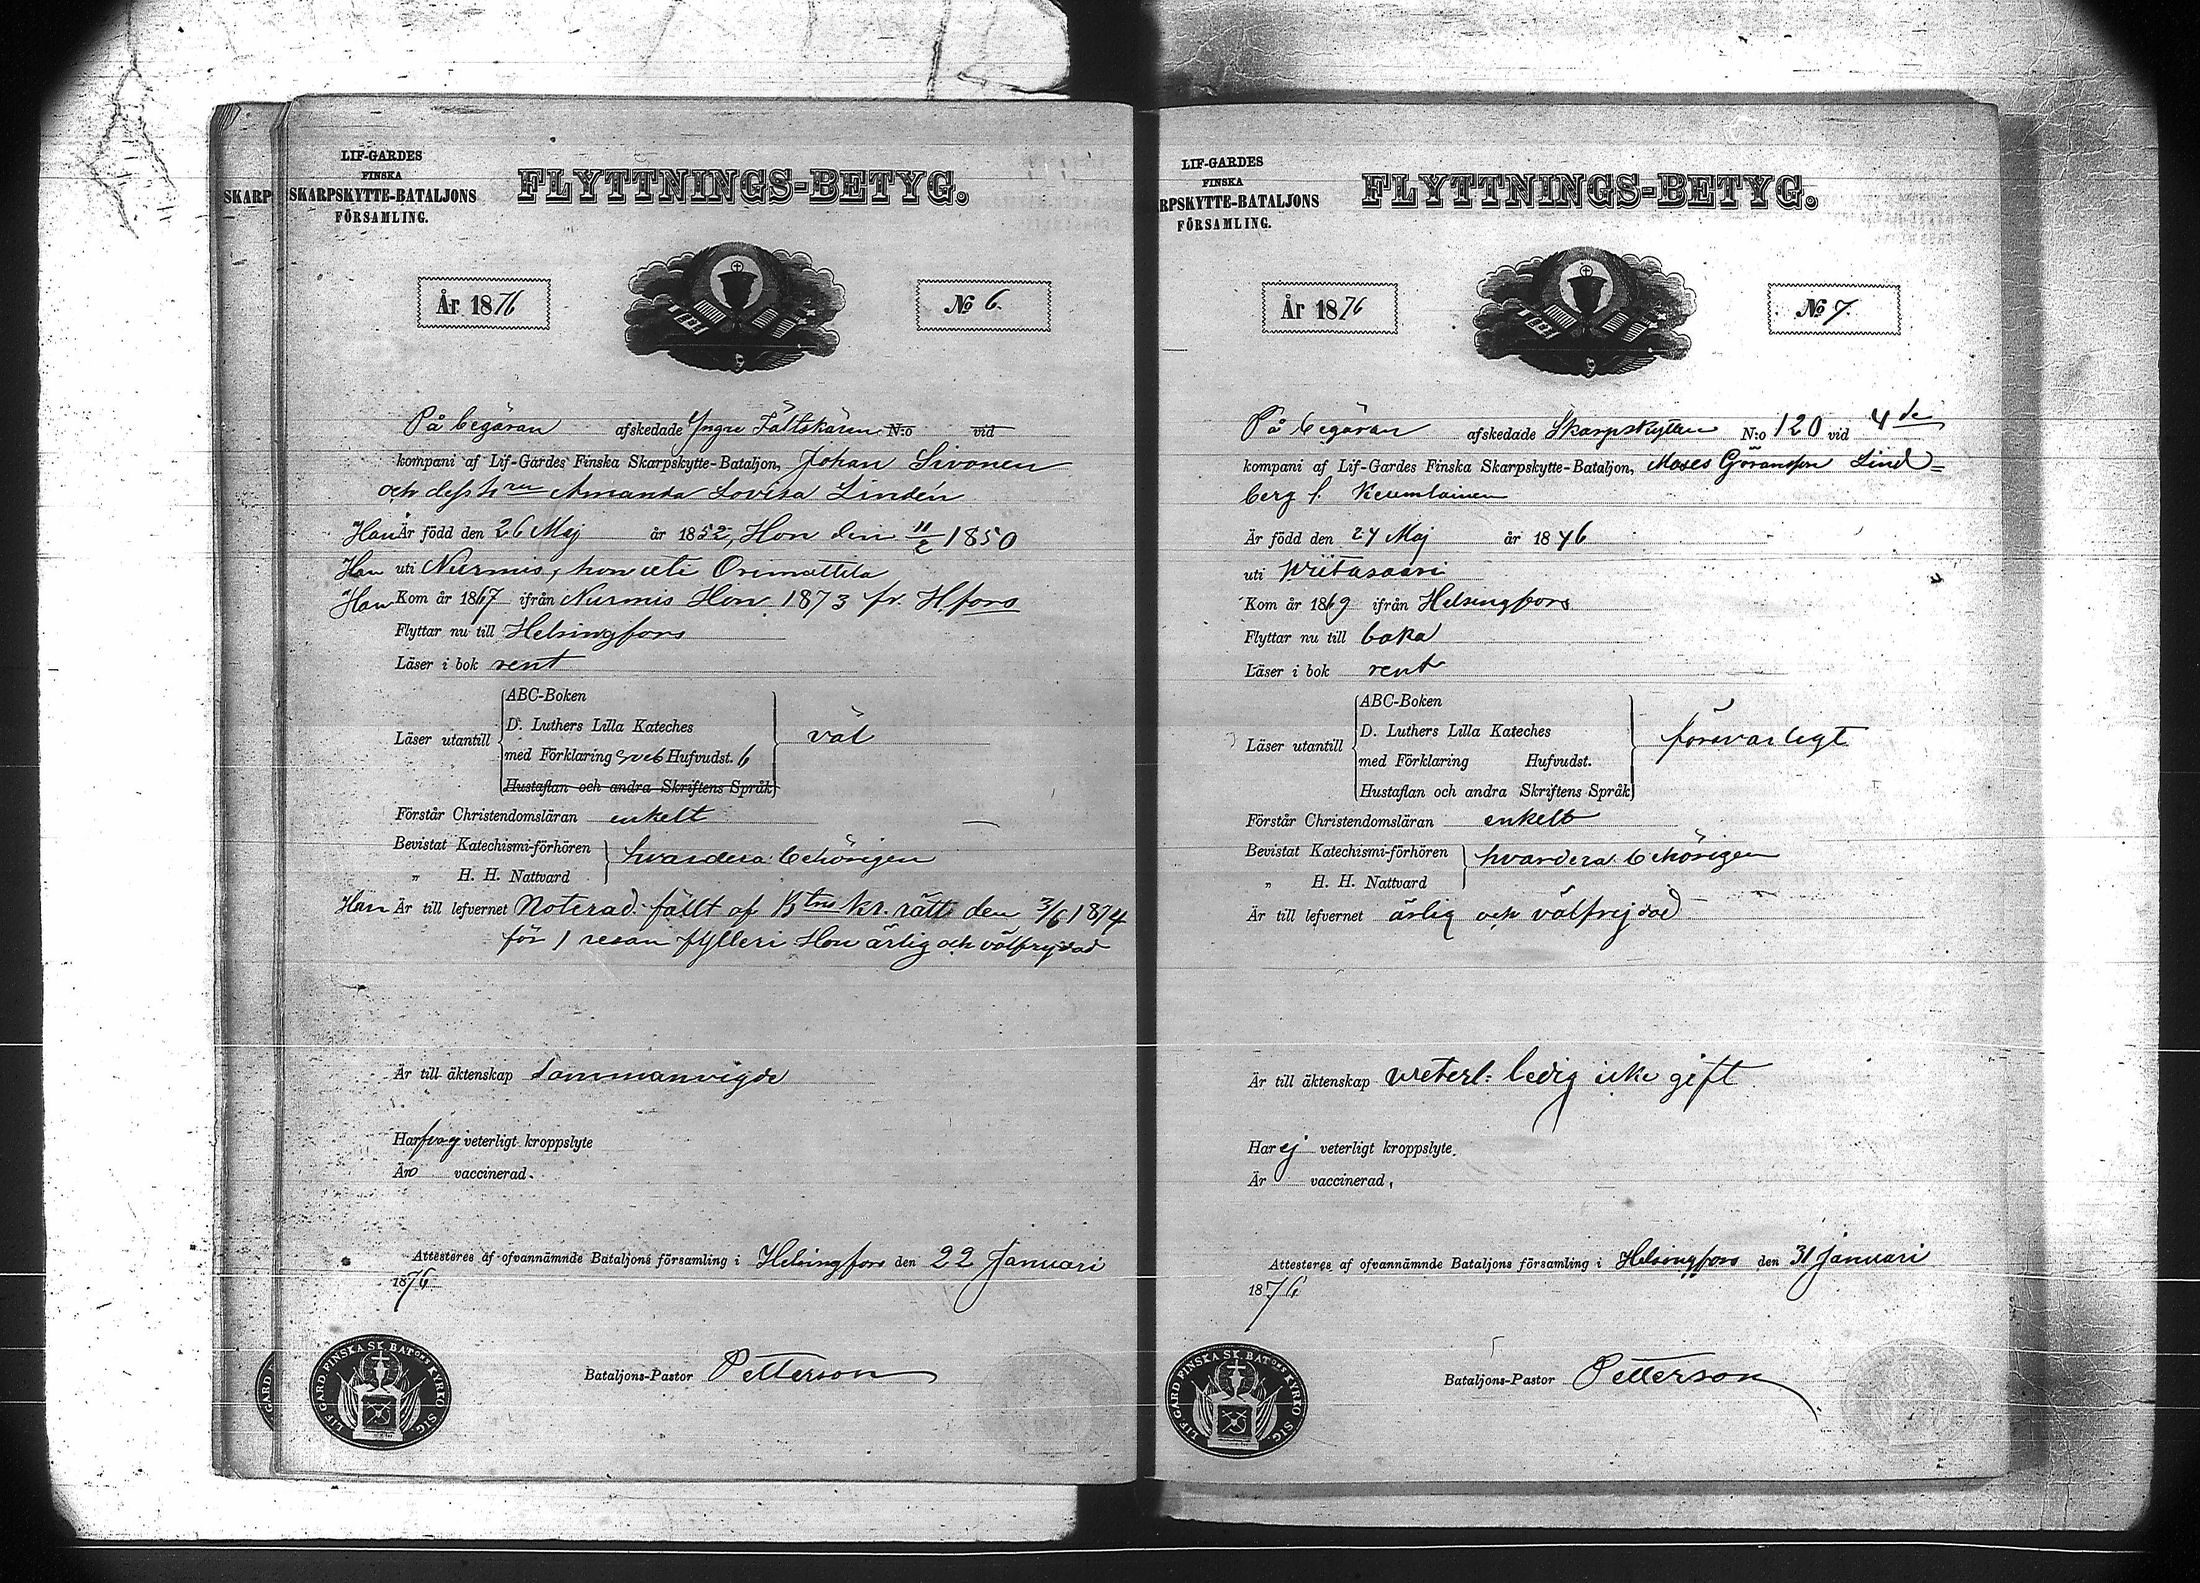 SKARP
LIF-GARDES
FINSKA
SKARPSKYTTE-BATALJONS
FÖRSAMLING.
FLYTTNINGS-BETYG.
År 1876
No 6.
På begäran afskedade Yngre Fältskären N:o vid
kompani af Lif-Gardes Finska Skarpskytte-Bataljon, Johan Sivonen
och dess hru Amanda Lovisa Lindén
Han Är född den 26 Maj år 1852, Hon den 11/2 1850
Han uti Nurmis, hon uti Orimattila
Han Kom år 1867 ifrån Nurmis Hon 1873 fr. H.fors
Flyttar nu till Helsingfors
Läser i bok rent
Läser utantill
ABC-Boken
D. Luthers Lilla Kateches
med Förklaring Sveb Hufvudst. 6
Hustaflan och andra Skriftens Språk
väl
Förstår Christendomsläran enkelt
Bevistat Katechismi-förhören
„ H. H. Nattvard
hvardera behörigen
Han Är till lefvernet Noterad. fällt af Btns Kr. rätt den 3/6 1874
för 1 resan fylleri Hon ärlig och välfrejdad
Är till äktenskap Sammanvigde
Har veterligt kroppslyte
Äro vaccinerad.
Attesteres af ofvannämnde Bataljons församling i Helsingfors den 22 Januari
1876
Bataljons-Pastor Petterson
LIF.GARD.FINSKA SK.BATONS KYRKO SIG.
LIF-GARDES
FINSKA
RPSKYTTE-BATALJONS
FÖRSAMLING.
FLYTTNINGS-BETYG.
År 1876
No 7.
På begäran afskedade Skarpskytten N:o 120 vid 4de
kompani af Lif-Gardes Finska Skarpskytte-Bataljon, Moses Göransson Lind=
berg f.
Är född den 27 Maj år 1846
uti Wiitasaari
Kom år 1869 ifrån Helsingfors
Flyttar nu till baka
Läser i bok rent
Läser utantill
ABC-Boken
D. Luthers Lilla Kateches
med Förklaring Hufvudst.
Hustaflan och andra Skriftens Språk
försvarligt
Förstår Christendomsläran enkelt
Bevistat Katechismi-förhören
„ H. H. Nattvard
hvardera behörigen
Är till lefvernet ärlig och välfrejdad
Är till äktenskap veterl: ledig icke gift
Har ej veterligt kroppslyte.
Är vaccinerad,
Attesteres af ofvannämnde Bataljons församling i Helsingfors den 31 Januari
1876
Bataljons-Pastor Petterson
LIF.GARD FINSKA SK.BATONS KYRKO SIG.